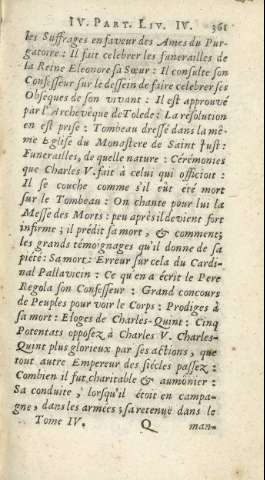 IV. PART. LIV. IV. 361
les Suffrages en faveur des Ames du Pur-
gatoire : Il fait celebrer les funerailles de
la Reine Eleonore sa Sœur : Il consulte son
Confesseur sur le dessein de faire celebrer ses
Obseques de son vivant : Il est approuvé
par l'Archevêque de Tolede : La résolution
en est prise : Tombeau dressé dans la mê-
me Eglise du Monastere de Saint Just :
Funerailles, de quelle nature : Cérémonies
que Charles V. fait à celui qui officioit :
Il se couche comme s'il eût été mort
sur le Tombeau : On chante pour lui la
Messe des Morts : peu après il devient fort
infirme ; il prédit sa mort, & comment ;
les grands témoignages qu'il donne de sa
piété : Sa mort : Erreur sur cela du Cardi-
nal Pallavicin : Ce qu'en a écrit le Pere
Regola son Confesseur : Grand concours
de Peuples pour voir le Corps : Prodiges à
sa mort : Eloges de Charles-Quint : Cinq
Potentats opposez à Charles V. Charles-
Quint plus glorieux par ses actions, que
tout autre Empereur des siécles passez :
Combien il fut charitable & aumônier :
Sa conduite, lorsqu'il étoit en campa-
gne, dans les armées ; sa retenuë dans le
Tome IV. Q man-